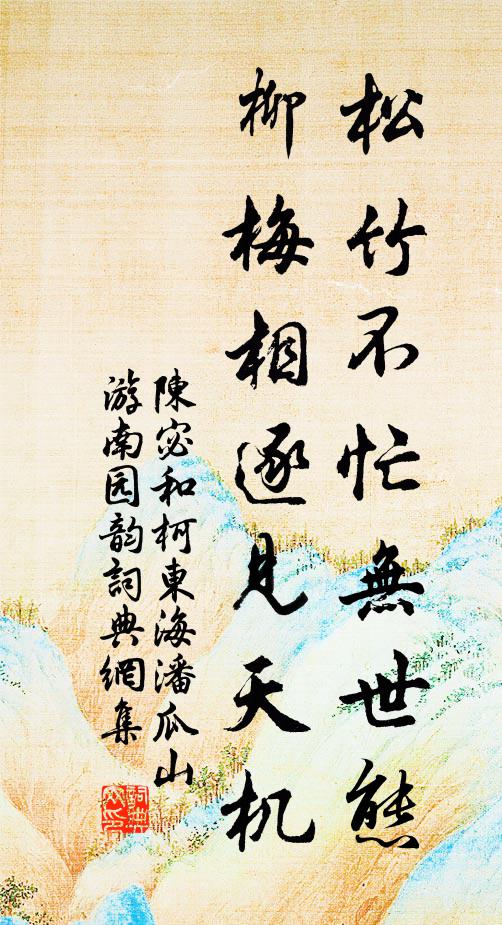 松竹不忙無世態
柳梅相逐見天机
陳宓和柯東海潘瓜山
游南园韵詞典網集